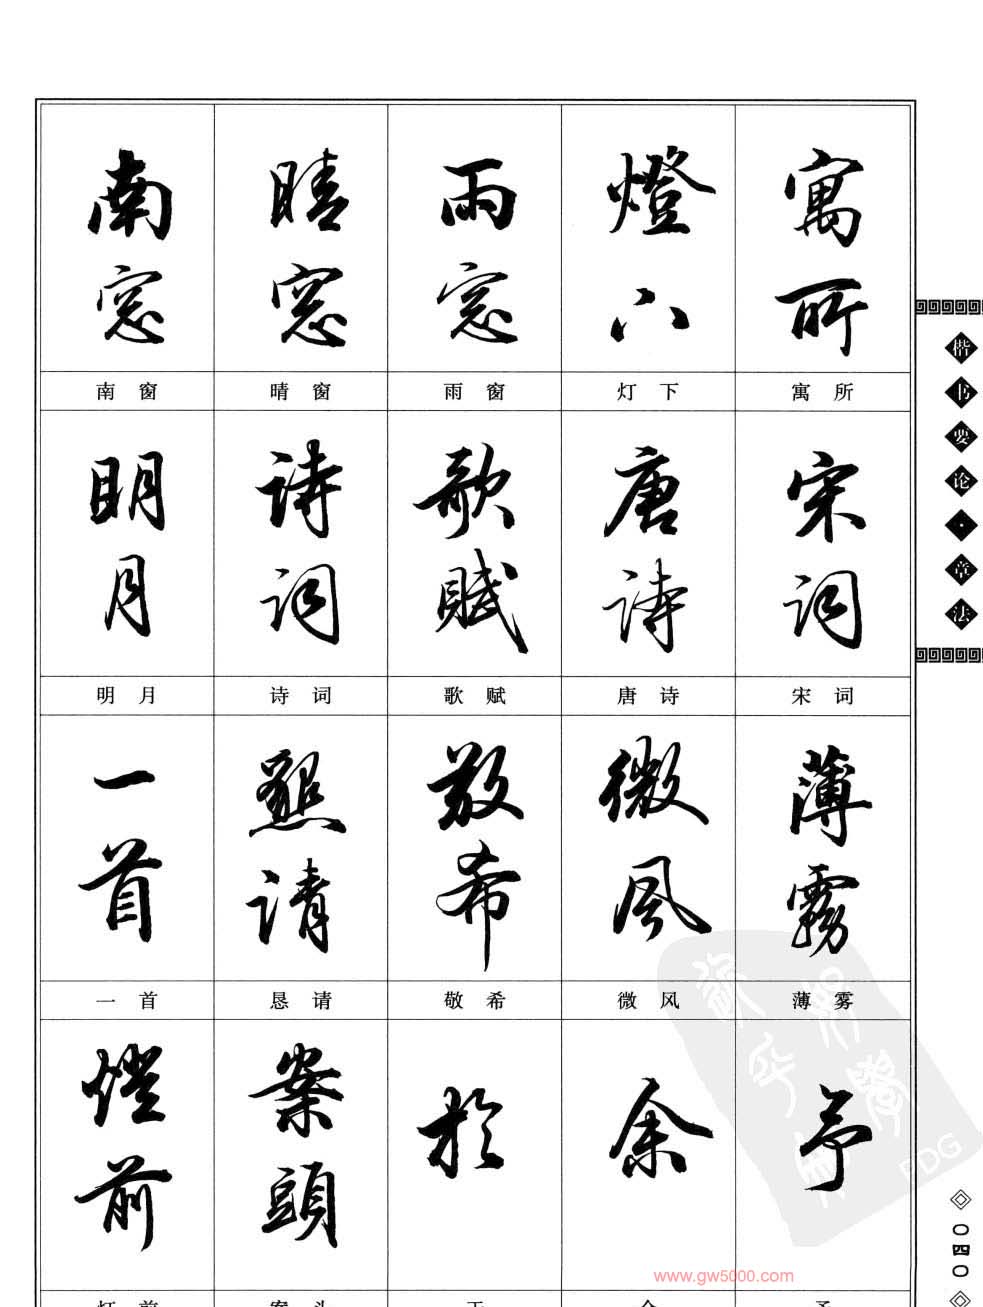 南窓 晴窓 雨窓 燈下 寓所
南窗 晴窗 雨窗 灯下 寓所
明月 诗词 歌赋 唐诗 宋词
明月 诗词 歌赋 唐诗 宋词
一首 懇请 敬希 微风 薄霧
一首 恳请 敬希 微风 薄雾
燈前 案頭 於 余 予
灯前 案头 于 余 予
楷书要论·章法
〇四〇
PDG
www.gw5000.com